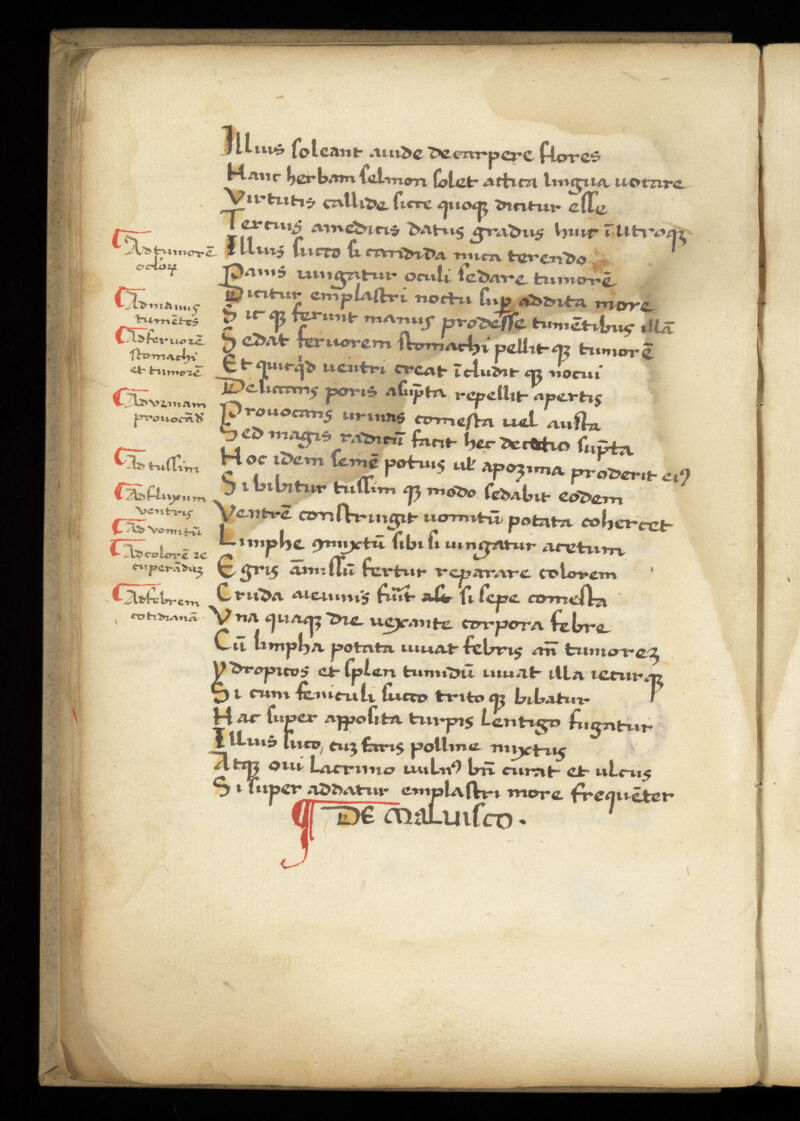 Illius soleant auide decarpere flores
Hanc herbam selinon solet attica lingua uocare
Virtutis callide sicce quoqꝫ dicitur esse
Tercius a medicis datus gradus huic ī utroqꝫ
Illius succo si candida mica terendo
Panis iungatur oculi sedare tumorē
Dicitur emplastri noctu suꝑ addita more
Sic qꝫ ferunt manus prodesse tumētibus illā
Sedat feruorem stomachi pellit qꝫ tumorē
Et quicqd uentri creat īcludit qꝫ nociui
Delicatas poris asūpta repellit apertis
Prouocans urinas comesta uel austa
Sed magis radicū facit hec decoctio sūpta
Hoc idem semē potius ul apozima proderit eiꝰ
Si bibitur tussim qꝫ modo sedabit eodem
Ventrē constringit uomitū potata cohercet
Limphe mixtū sibi si iungatur acetum
Egris āmissū fertur reparare colorem
Cruda aieiunis si sepe comesta
Vna quaqꝫ die uexante corpora febre
Cū limpha potata iuuat febris an̄ tumorez
Ydropicos et splen tumidū iuuat illa iecurqꝫ
Si cum feniculi succo trito qꝫ bibatur
Hac super apposita turpis lentigo fugatur
Illius suco, cuꝫ farris polline mixtus
Atqꝫ oui lacrimo uulnꝰ bn̄ curat et ulcus
Si super addatur emplastri more frequēter
¶ De Maluisco.
Ad tumorē
oclorꝝ
Ad manus
tumētes
Ad feruorē
stomachi
et tumorē
Ad vrinam
prouocād
Ad tussim
Ad fluxum
ventris
Ad vomitū
Ad colorē re
cuperāduꝫ
Ad febrem
cotidianā